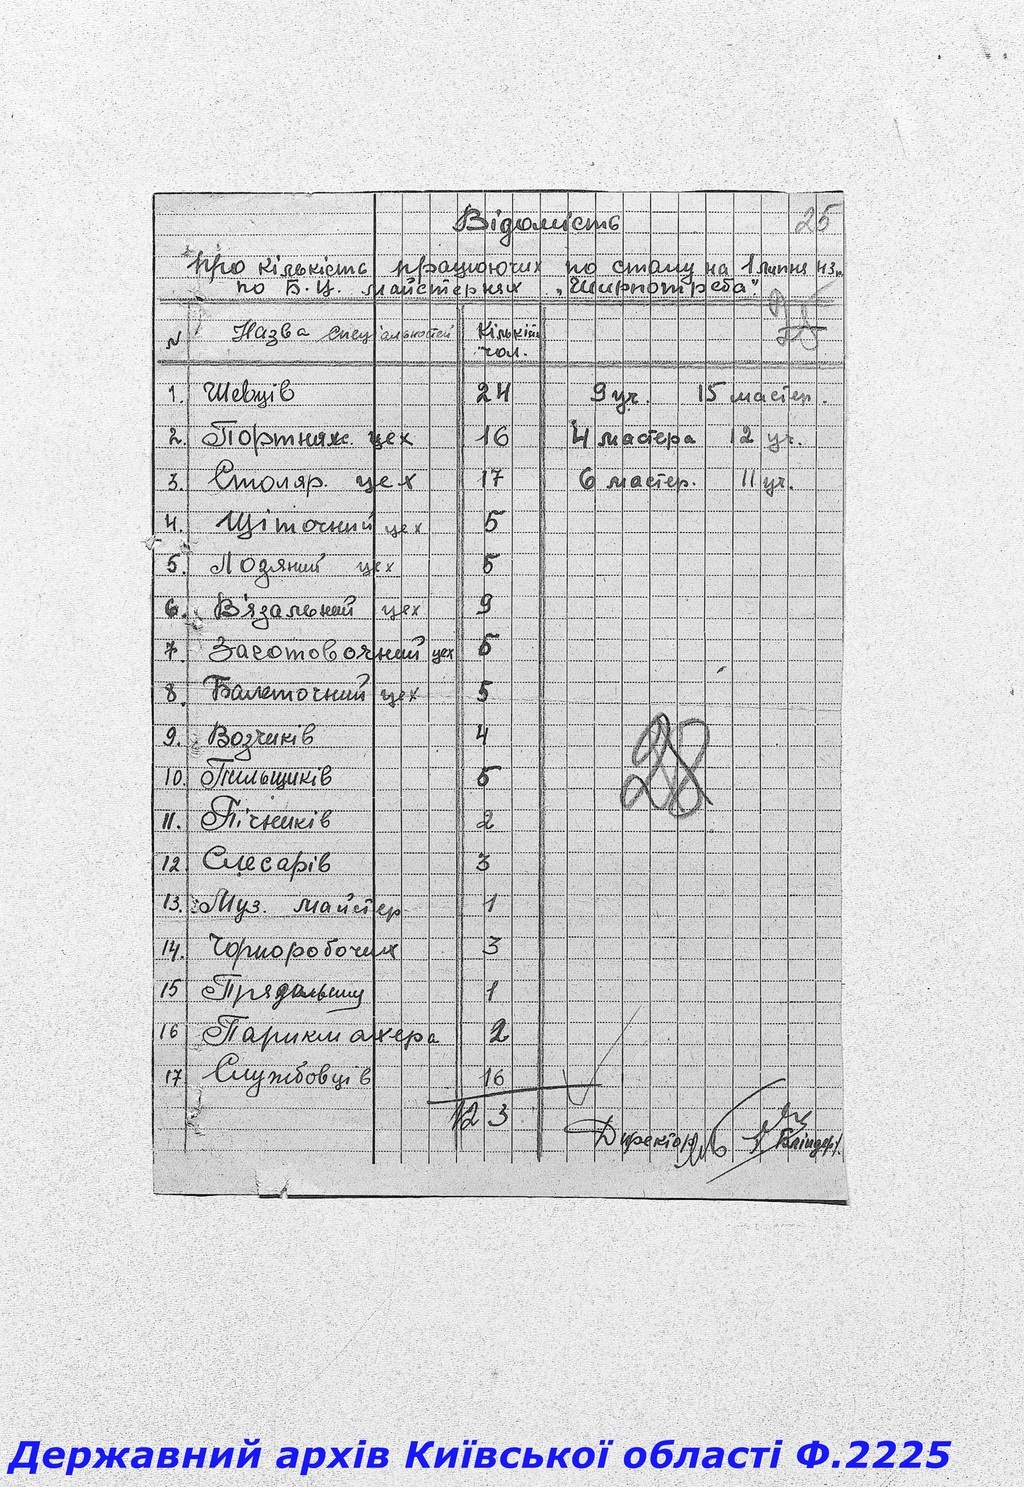 25
Відомість
про кількість працюючих по стану на 1 липня 43 р.
по Б.Ц. майстернях „Ширпотреба"
N Назва спеціальностей Кількість чол.
1. Шевців 24 9 уч. 15 мастер.
2. Портняж. цех 16 4 мастера 12 уч.
3. Столяр. цех 17 6 мастер. 11 уч.
4. Щіточний цех 5
5. Лозяний цех 5
6. В'язальний цех 9
7. Заготовочний цех 5
8. Балеточний цех 5
9. Возчиків 4
10. Пильщиків 5
11. Пічників 2
12. Слесарів 3
13. Муз. майстер 1
14. Чорноробочих 3
15 Прядольниц 1
16 Парикмахера 2
17 Службовців 16
123
28
Директор
Державний архів Київської області Ф.2225